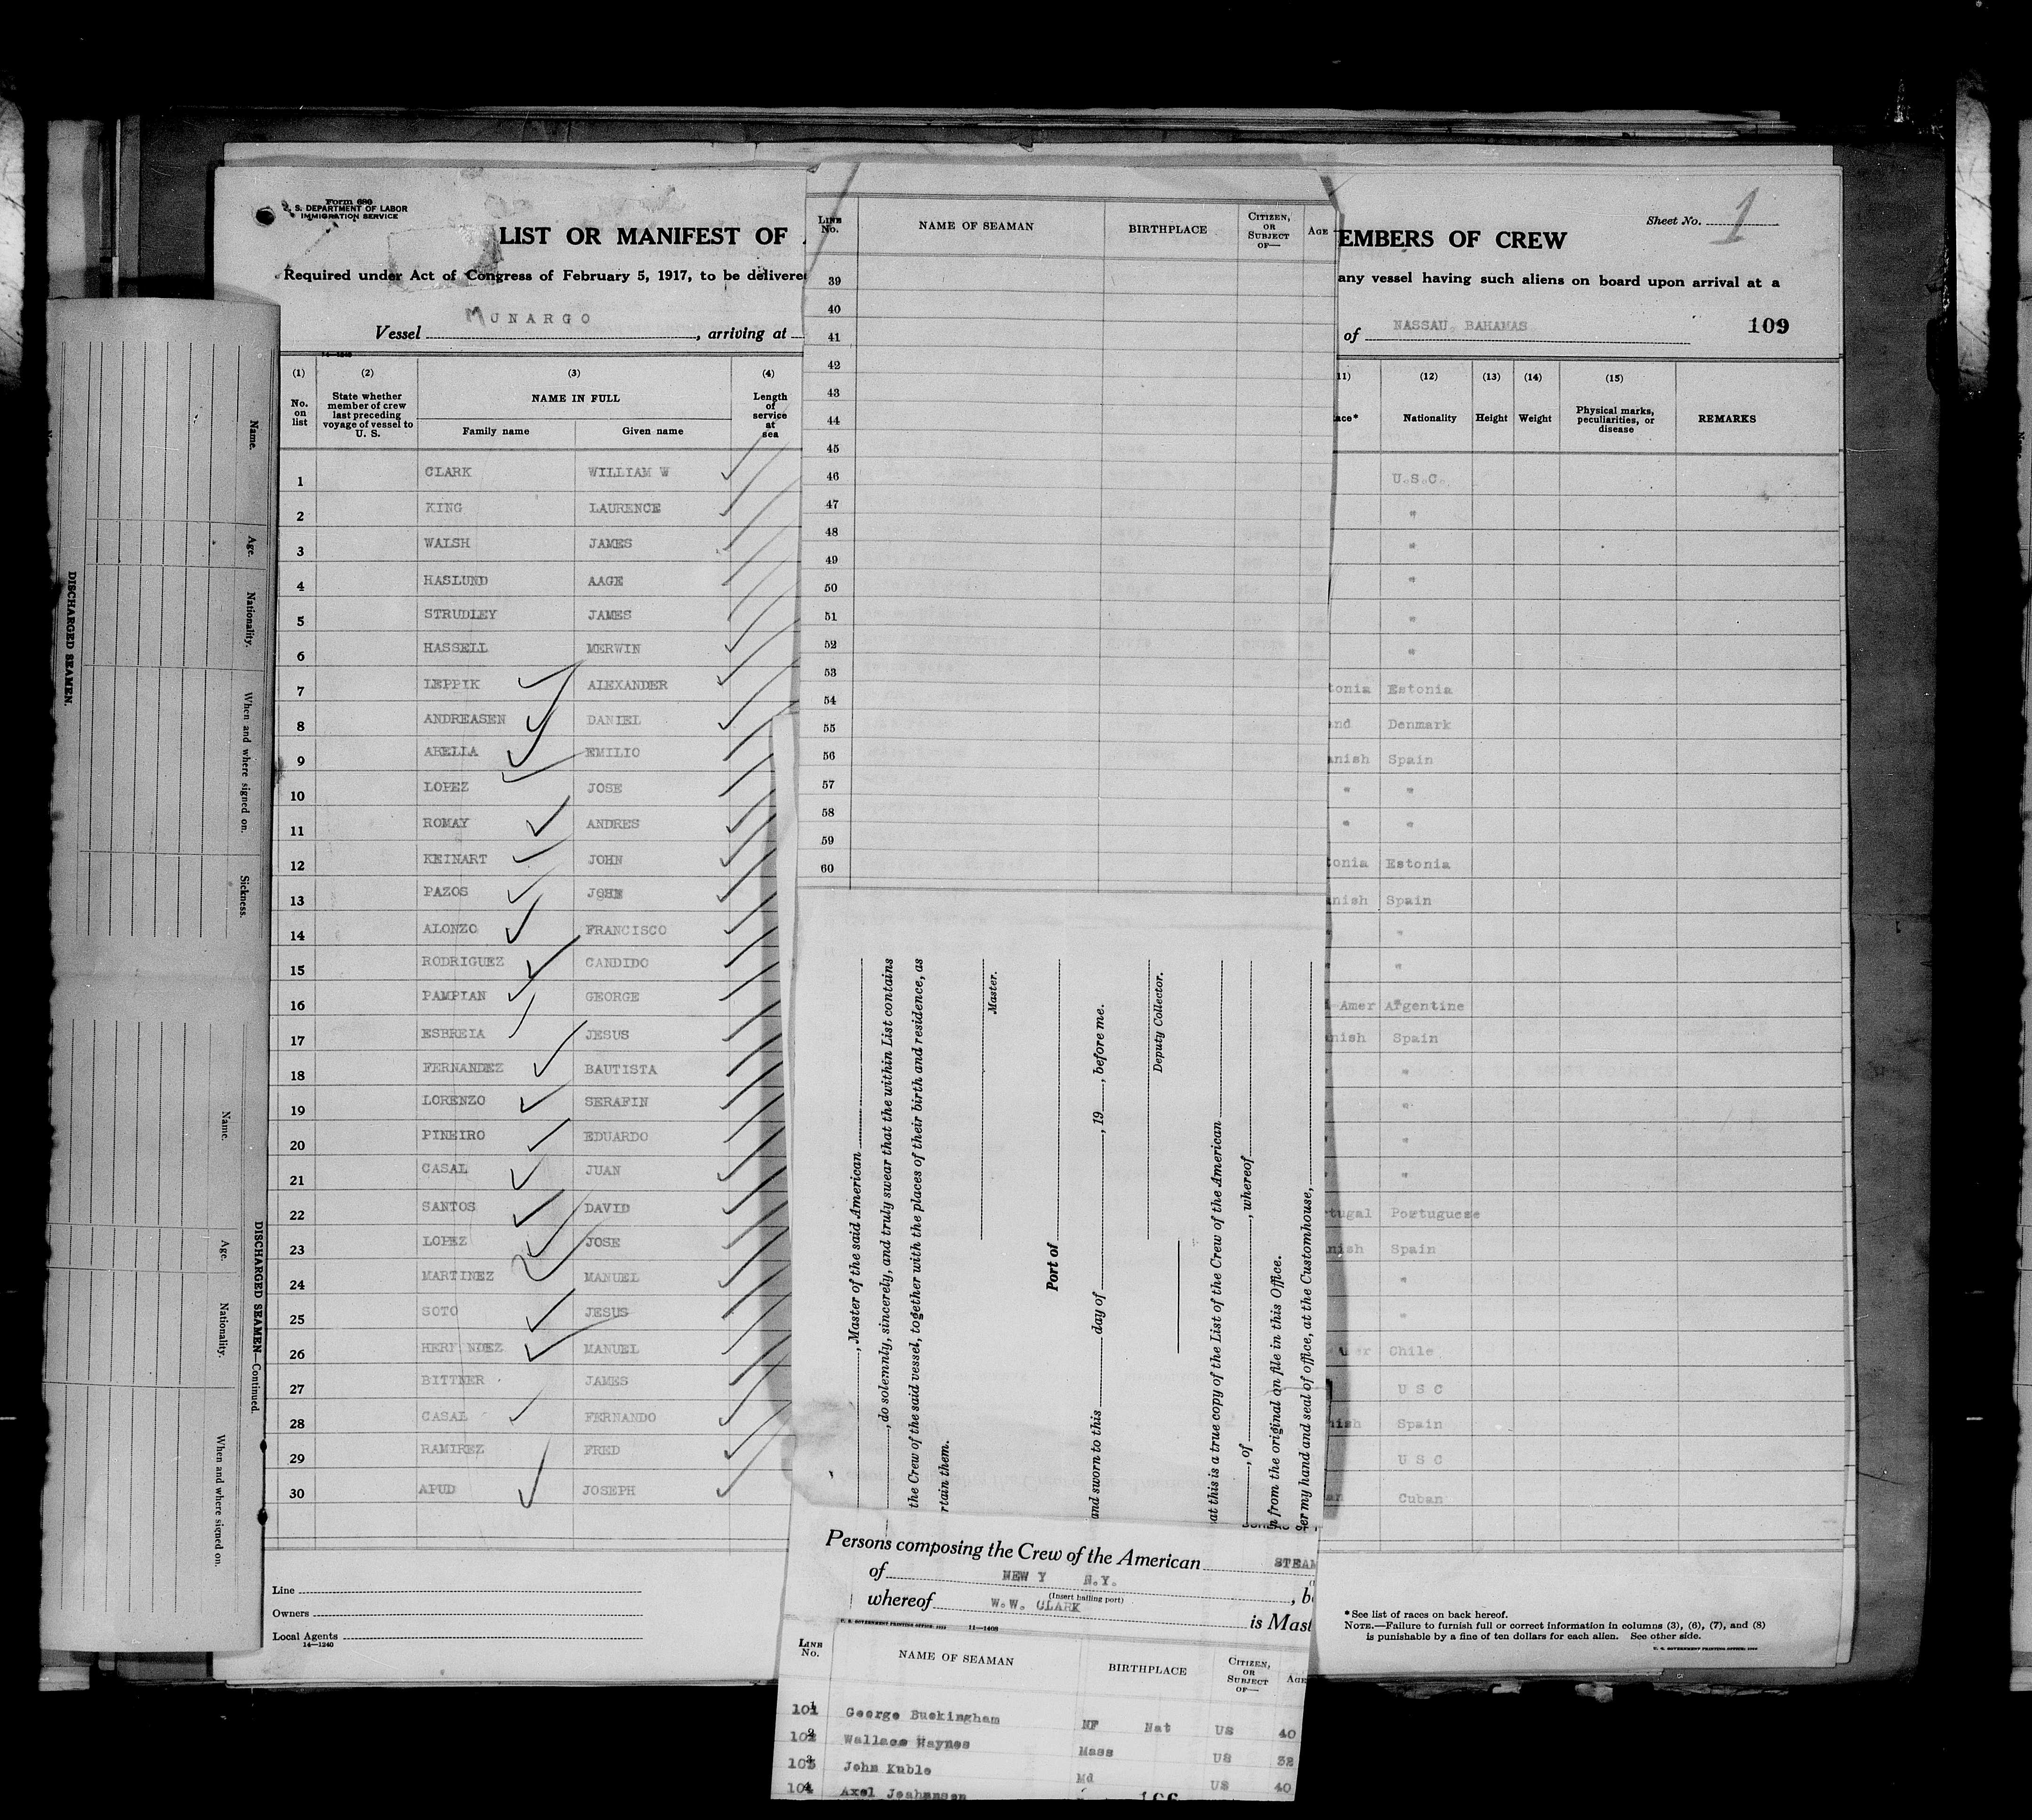 Form 680
U. S. DEPARTMENT OF LABOR
IMMIGRATION SERVICE
LIST OR MANIFEST OF
EMBERS OF CREW
Sheet No. 1
Required under Act of Congress of February 5, 1917, to be delivere
any vessel having such aliens on board upon arrival at a
Vessel MUNARGO, arriving at
of NASSAU, BAHAMAS
109
14-1240
(1) (2) (3) (4)
No. on list
State whether member of crew last preceding voyage of vessel to U. S.
NAME IN FULL
Family name Given name
Length of service at sea
11) (12) (13) (14) (15)
ace* Nationality Height Weight Physical marks, peculiarities, or disease REMARKS
1 CLARK WILLIAM W U.S.C.
2 KING LAURENCE "
3 WALSH JAMES "
4 HASLUND AAGE "
5 STRUDLEY JAMES "
6 HASSELL MERWIN "
7 LEPPIK ALEXANDER tonia Estonia
8 ANDREASEN DANIEL and Denmark
9 ABELLA EMILIO anish Spain
10 LOPEZ JOSE " "
11 ROMAY ANDRES " "
12 KEINART JOHN tonia Estonia
13 PAZOS JOSE anish Spain
14 ALONZO FRANCISCO "
15 RODRIGUEZ CANDIDO "
16 PAMPIAN GEORGE Amer Argentine
17 ESBREIA JESUS anish Spain
18 FERNANDEZ BAUTISTA "
19 LORENZO SERAFIN "
20 PINEIRO EDUARDO "
21 CASAL JUAN "
22 SANTOS DAVID tugal Portuguese
23 LOPEZ JOSE nish Spain
24 MARTINEZ MANUEL "
25 SOTO JESUS "
26 HERNANDEZ MANUEL Chile
27 BITTNER JAMES U S C
28 CASAL FERNANDO nish Spain
29 RAMIREZ FRED U S C
30 APUD JOSEPH an Cuban
Line
Owners
Local Agents
14-1240
* See list of races on back hereof.
NOTE.—Failure to furnish full or correct information in columns (3), (6), (7), and (8)
is punishable by a fine of ten dollars for each alien. See other side.
U. S. GOVERNMENT PRINTING OFFICE
Name.
Age.
Nationality.
When and where signed on.
Sickness.
DISCHARGED SEAMEN.
Name.
Age.
Nationality.
When and where signed on.
DISCHARGED SEAMEN—Continued.
LINE No. NAME OF SEAMAN BIRTHPLACE CITIZEN, OR SUBJECT OF— AGE
39
40
41
42
43
44
45
46
47
48
49
50
51
52
53
54
55
56
57
58
59
60
, Master of the said American
, do solemnly, sincerely, and truly swear that the within List contains
the Crew of the said vessel, together with the places of their birth and residence, as
rtain them.
Master.
Port of
and sworn to this day of , 19 , before me.
Deputy Collector.
at this is a true copy of the List of the Crew of the American
, of , whereof
n from the original on file in this Office.
er my hand and seal of office, at the Customhouse,
Persons composing the Crew of the American STEAM
of NEW Y N.Y. , b
(Insert hailing port)
whereof W.W. CLARK is Mast
U. S. GOVERNMENT PRINTING OFFICE 11-1408
LINE No. NAME OF SEAMAN BIRTHPLACE CITIZEN, OR SUBJECT OF— AGE
101 George Buckingham NF Nat US 40
102 Wallace Haynes Mass US 32
103 John Kuble Md US 40
104 Axel Joahansen